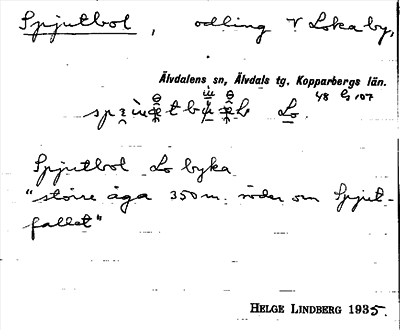 Spjutbol, odling V Loka by,
Älvdalens sn, Älvdals tg, Kopparbergs län.
48 Gj 107
Lo
Spjutbol Lo byka
"större äga 350 m. söder om Spjut-
fallet"
HELGE LINDBERG 1935.